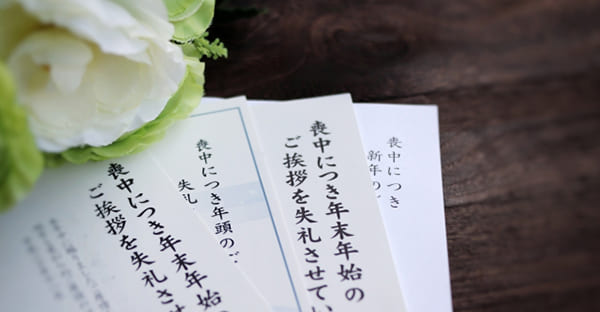 喪中につき年末年始の
ご挨拶を失礼させてい
喪中につき年頭のご
失礼
喪中につき年末年始
ご挨拶を失礼させ
喪中につき
新年のご